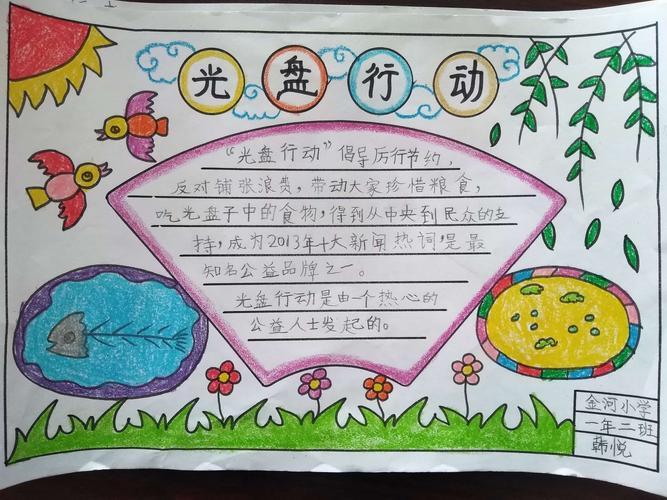 光盘行动
“光盘行动”倡导厉行节约，
反对铺张浪费，带动大家珍惜粮食，
吃光盘子中的食物，得到从中央到民众的支
持，成为2013年十大新闻热词，是最
知名公益品牌之一。
光盘行动是由一个热心的
公益人士发起的。
金河小学
一年二班
韩悦